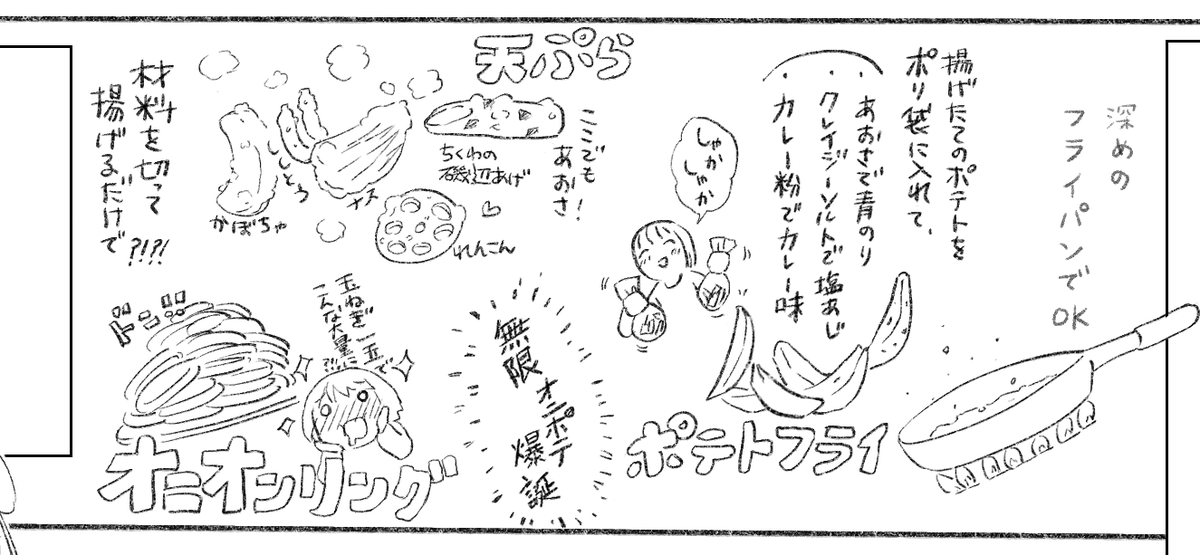 深めの
フライパンで
OK
揚げたてのポテトを
ポリ袋に入れて、
・あおさで青のり
・クレイジーソルトで塩あじ
・カレー粉でカレー味
しゃか
しゃか
ポテトフライ
天ぷら
ここでも
あおさ!
ちくわの
磯辺あげ
れんこん
ナス
ししとう
かぼちゃ
材料を切って
揚げるだけで
?!?!
無限
オニポテ
爆誕
玉ねぎ一玉で
こんな大量に?!
ドン!!
オニオンリング